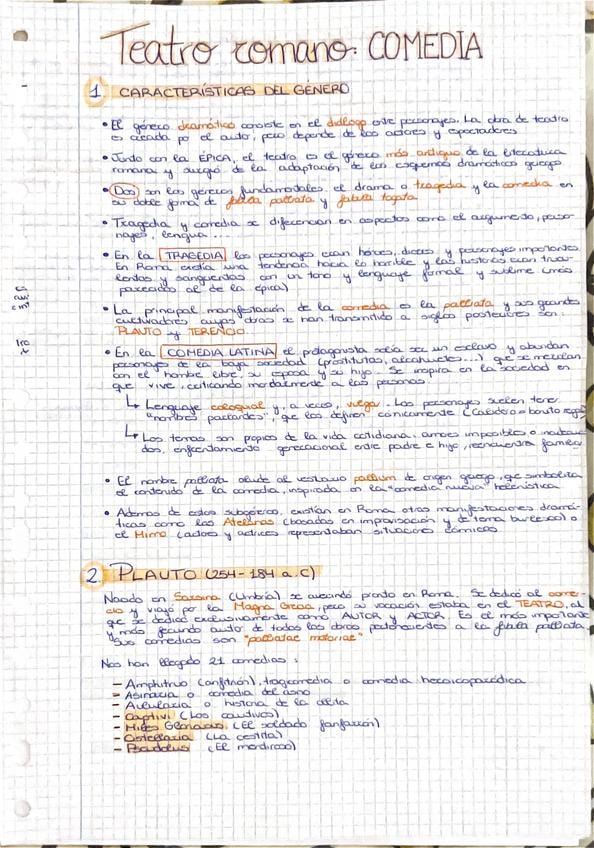 Teatro romano: COMEDIA
1. CARACTERÍSTICAS DEL GÉNERO
• El género dramático consiste en el diálogo entre personajes. La obra de teatro
es creada por el autor, pero depende de los actores y espectadores
• Junto con la ÉPICA, el teatro es el género más antiguo de la literatura
romana y surgió de la adaptación de los esquemas dramáticos griegos.
• Dos son los géneros fundamentales: el drama o tragedia y la comedia en
su doble forma de fabula palliata y fabula togata.
• Tragedia y comedia se diferencian en aspectos como el argumento, perso-
najes, lengua.
• En la TRAGEDIA los personajes eran héroes, dioses y personajes importantes.
En Roma existía una tendencia hacia lo horrible y las historias eran trucu-
lentas y sangrientas con un tono y lenguaje formal y sublime (más
parecido al de la épica)
• La principal manifestación de la comedia es la palliata y sus grandes
cultivadores cuyas obras se han transmitido a siglos posteriores son:
PLAUTO y TERENCIO.
• En la COMEDIA LATINA el protagonista solía ser un esclavo y abundan
personajes de la baja sociedad (prostitutas, alcahuetes...) que se mezclan
con el hombre libre, su esposa y su hijo. Se inspira en la sociedad en
que vive, criticando mordazmente a las personas.
↳ Lenguaje coloquial y, a veces, vulgar. Los personajes suelen tener
"nombres parlantes", que los definen cómicamente (Calidoro = bonito
↳ Los temas son propios de la vida cotidiana: amores imposibles o
dos, enfrentamiento generacional entre padre e hijo, reencuentro
• El nombre palliata alude al vestuario pallium de origen griego, que simboliza
el contenido de la comedia, inspirada en la "comedia nueva" helenística
• Además de estos subgéneros, existían en Roma otras manifestaciones dramá-
ticas como las Atelanas (basadas en improvisación y de tema burlesco) o
el Mimo (actores y actrices representaban situaciones cómicas.
2. PLAUTO (254-184 a.C)
Nacido en Sarsina (Umbría) se avecindó pronto en Roma. Se dedicó al comer-
cio y viajó por la Magna Grecia, pero su vocación estaba en el TEATRO, al
que se dedicó exclusivamente como AUTOR y ACTOR. Es el más importante
y más fecundo autor de todas las obras pertenecientes a la fabula palliata.
Sus comedias son "palliatae motoriae"
Nos han llegado 21 comedias:
– Amphitruo (anfitrión), tragicomedia o comedia heroicoparódica
– Asinaria o comedia del asno
– Aulularia o historia de la ollita
– Captivi (Los cautivos)
– Miles Gloriosus (El soldado fanfarrón)
– Cistellaria (La cestita)
– Pseudolus (El mentiroso)